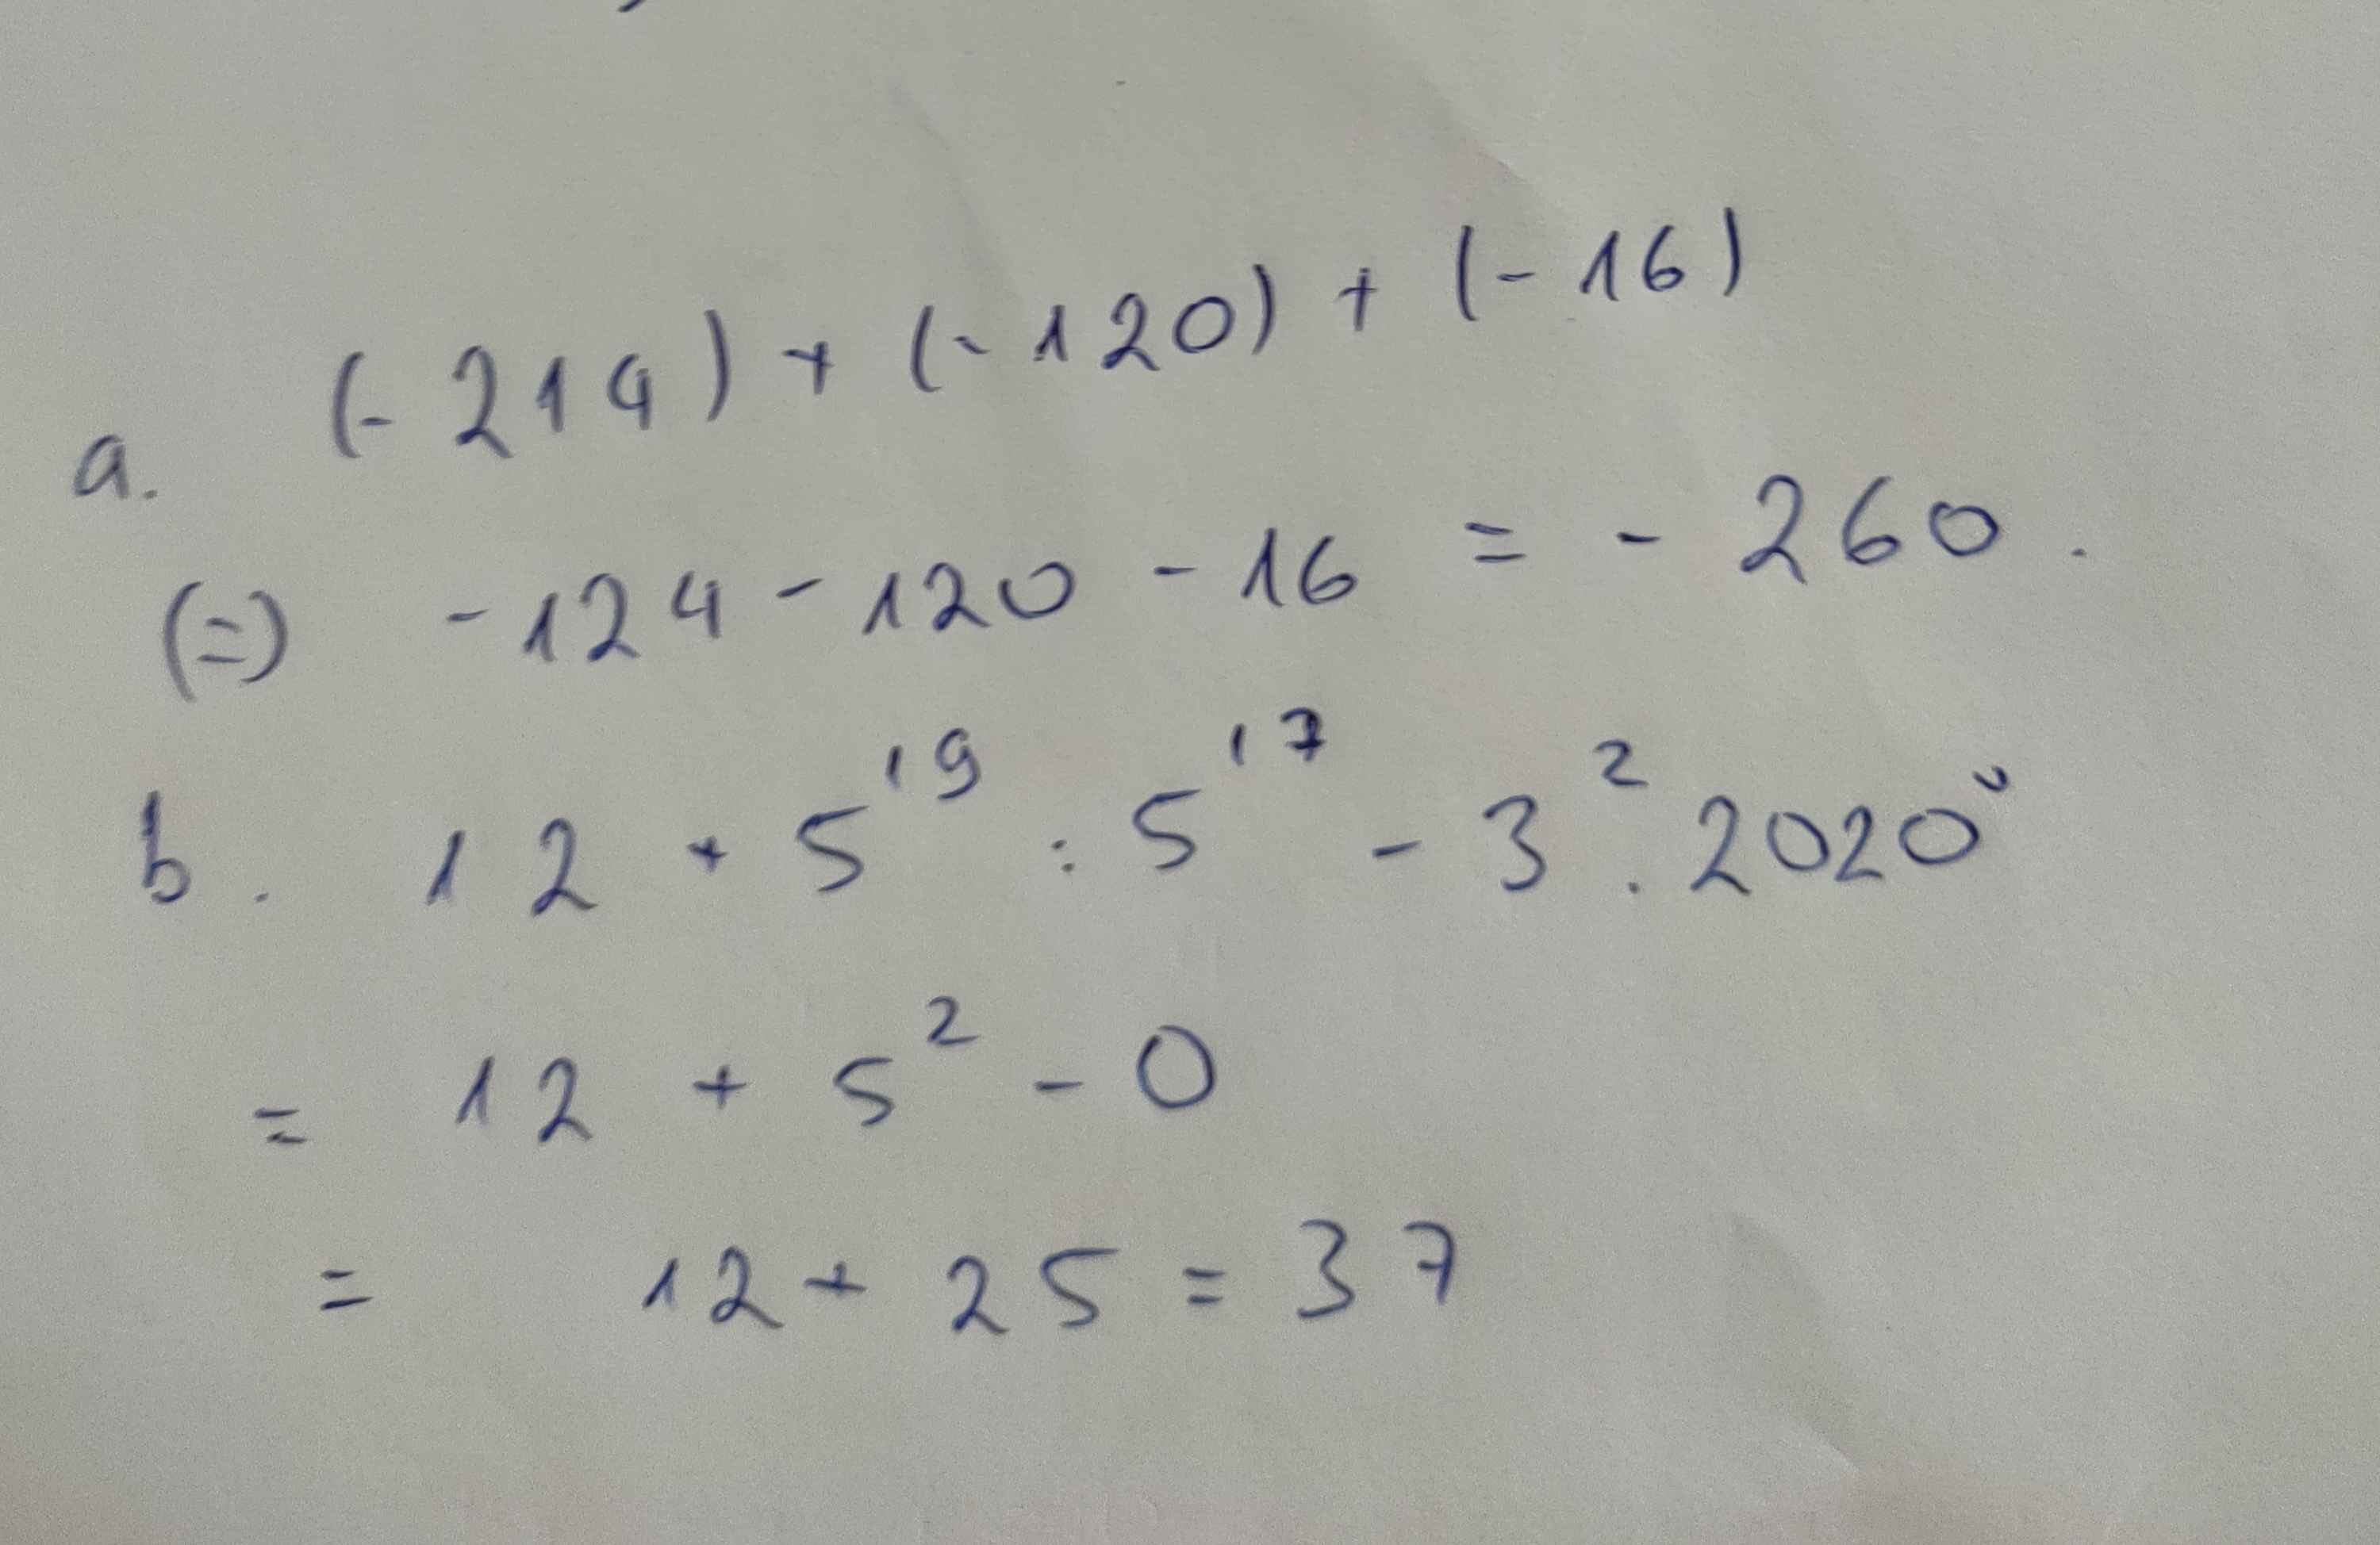 a. (-214) + (-120) + (-16)
(=) -124 - 120 - 16 = - 260.
b. 12 + 5¹⁹ : 5¹⁷ - 3² . 2020⁰
= 12 + 5² - 0
= 12 + 25 = 37